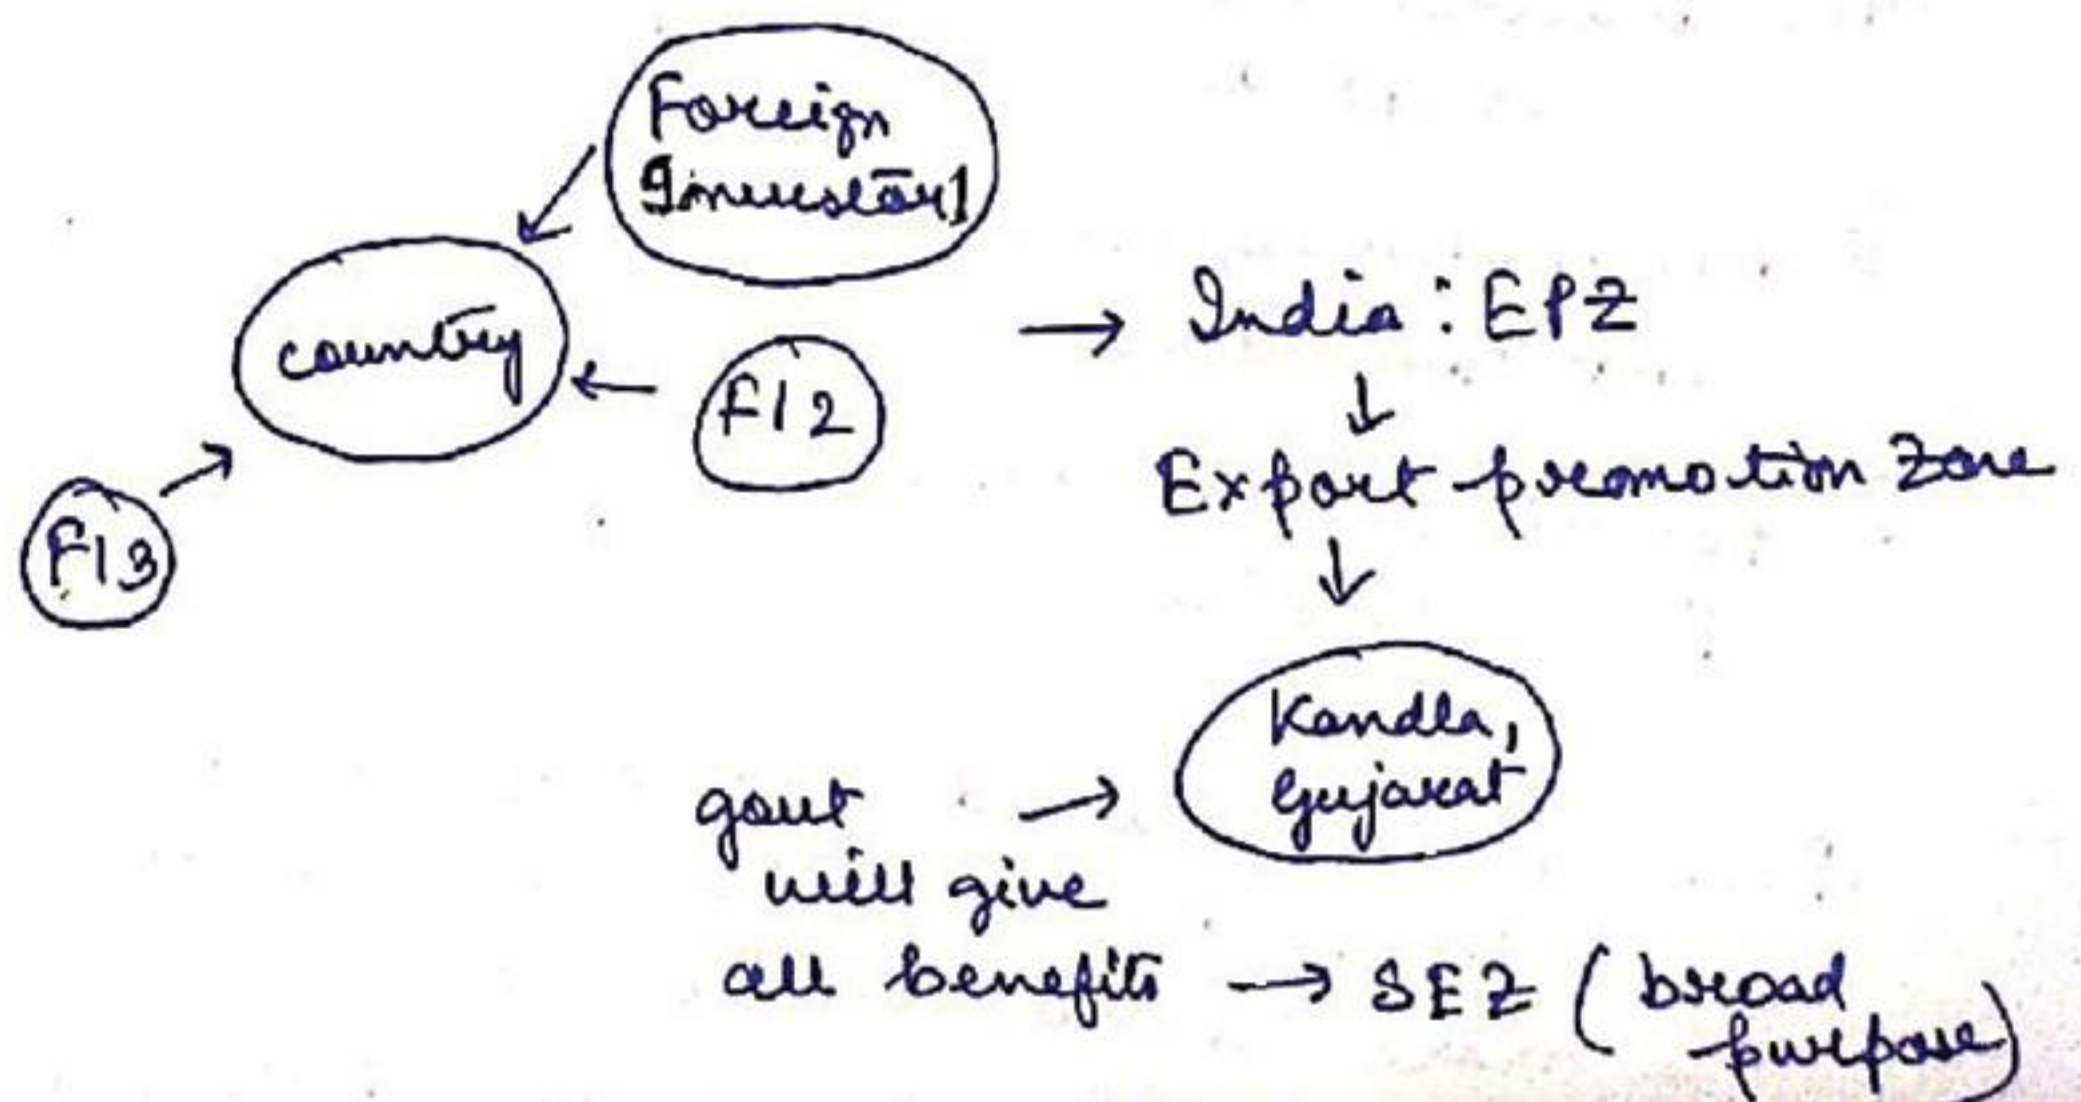 Foreign
Investor 1
country
FI 2
FI 3
→ India : EPZ
↓
Export promotion Zone
↓
Kandla,
Gujarat
govt →
will give
all benefits → SEZ ( broad
purpose)